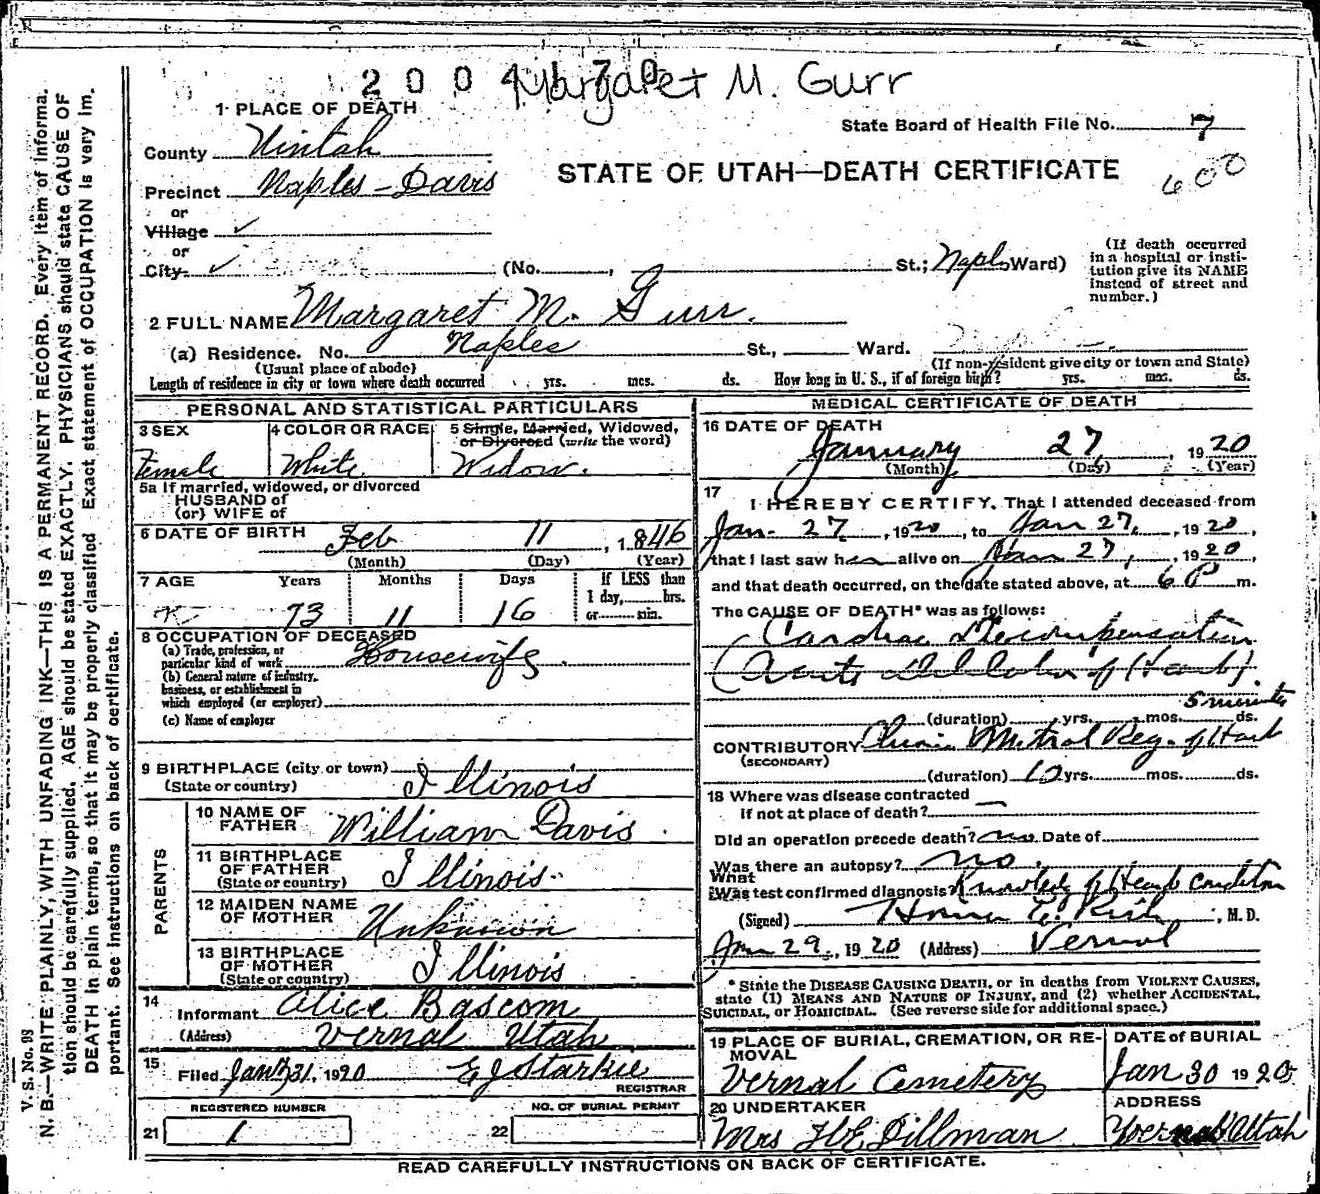 2 0 0 4 1 7 0
Margaret M. Gurr
1 PLACE OF DEATH
State Board of Health File No. 7
County Uintah
STATE OF UTAH—DEATH CERTIFICATE
600
Precinct Naples - Davis
or
Village ✓
or
City ✓ (No. , St.; Naples Ward)
(If death occurred
in a hospital or insti-
tution give its NAME
instead of street and
number.)
2 FULL NAME Margaret M. Gurr.
(a) Residence. No. Naples St., Ward.
(Usual place of abode) (If non-resident give city or town and State)
Length of residence in city or town where death occurred yrs. mos. ds. How long in U. S., if of foreign birth? yrs. mos. ds.
PERSONAL AND STATISTICAL PARTICULARS
3 SEX
Female
4 COLOR OR RACE
White
5 Single, Married, Widowed,
or Divorced (write the word)
Widow.
5a If married, widowed, or divorced
HUSBAND of
(or) WIFE of
6 DATE OF BIRTH Feb 11, 1846
(Month) (Day) (Year)
7 AGE Years Months Days If LESS than
1 day, hrs.
or min.
73 11 16
8 OCCUPATION OF DECEASED
(a) Trade, profession, or
particular kind of work Housewife
(b) General nature of industry,
business, or establishment in
which employed (or employer)
(c) Name of employer
9 BIRTHPLACE (city or town)
(State or country) Illinois
PARENTS
10 NAME OF
FATHER William Davis
11 BIRTHPLACE
OF FATHER
(State or country) Illinois
12 MAIDEN NAME
OF MOTHER Unknown
13 BIRTHPLACE
OF MOTHER
(State or country) Illinois
14
Informant Alice Bascom
(Address) Vernal Utah
15
Filed Jan 31, 1920 E J Starkie
REGISTRAR
REGISTERED NUMBER
21 1
NO. OF BURIAL PERMIT
22
MEDICAL CERTIFICATE OF DEATH
16 DATE OF DEATH
January 27, 1920
(Month) (Day) (Year)
17
I HEREBY CERTIFY, That I attended deceased from
Jan. 27, 1920, to Jan 27, 1920,
that I last saw her alive on Jan 27, 1920
and that death occurred, on the date stated above, at 6 P m.
The CAUSE OF DEATH* was as follows:
Cardiac Decompensation
(Acute Dilation of Heart)
5 minutes
(duration) yrs. mos. ds.
CONTRIBUTORY Chronic Mitral Reg. of Heart
(SECONDARY)
(duration) 10 yrs. mos. ds.
18 Where was disease contracted
if not at place of death? —
Did an operation precede death? no Date of
Was there an autopsy? no.
What
Was test confirmed diagnosis? Knowledge of Heart Condition
(Signed) Homer E. Rich, M. D.
Jan 29, 1920 (Address) Vernal
* State the DISEASE CAUSING DEATH, or in deaths from VIOLENT CAUSES,
state (1) MEANS AND NATURE OF INJURY, and (2) whether ACCIDENTAL,
SUICIDAL, or HOMICIDAL. (See reverse side for additional space.)
19 PLACE OF BURIAL, CREMATION, OR RE-
MOVAL
Vernal Cemetery
DATE of BURIAL
Jan 30 1920
20 UNDERTAKER
Mrs H E Dillman
ADDRESS
Vernal Utah
READ CAREFULLY INSTRUCTIONS ON BACK OF CERTIFICATE.
V. S. No. 98
N. B.—WRITE PLAINLY, WITH UNFADING INK—THIS IS A PERMANENT RECORD. Every item of informa-
tion should be carefully supplied. AGE should be stated EXACTLY. PHYSICIANS should state CAUSE OF
DEATH in plain terms, so that it may be properly classified. Exact statement of OCCUPATION is very im-
portant. See instructions on back of certificate.